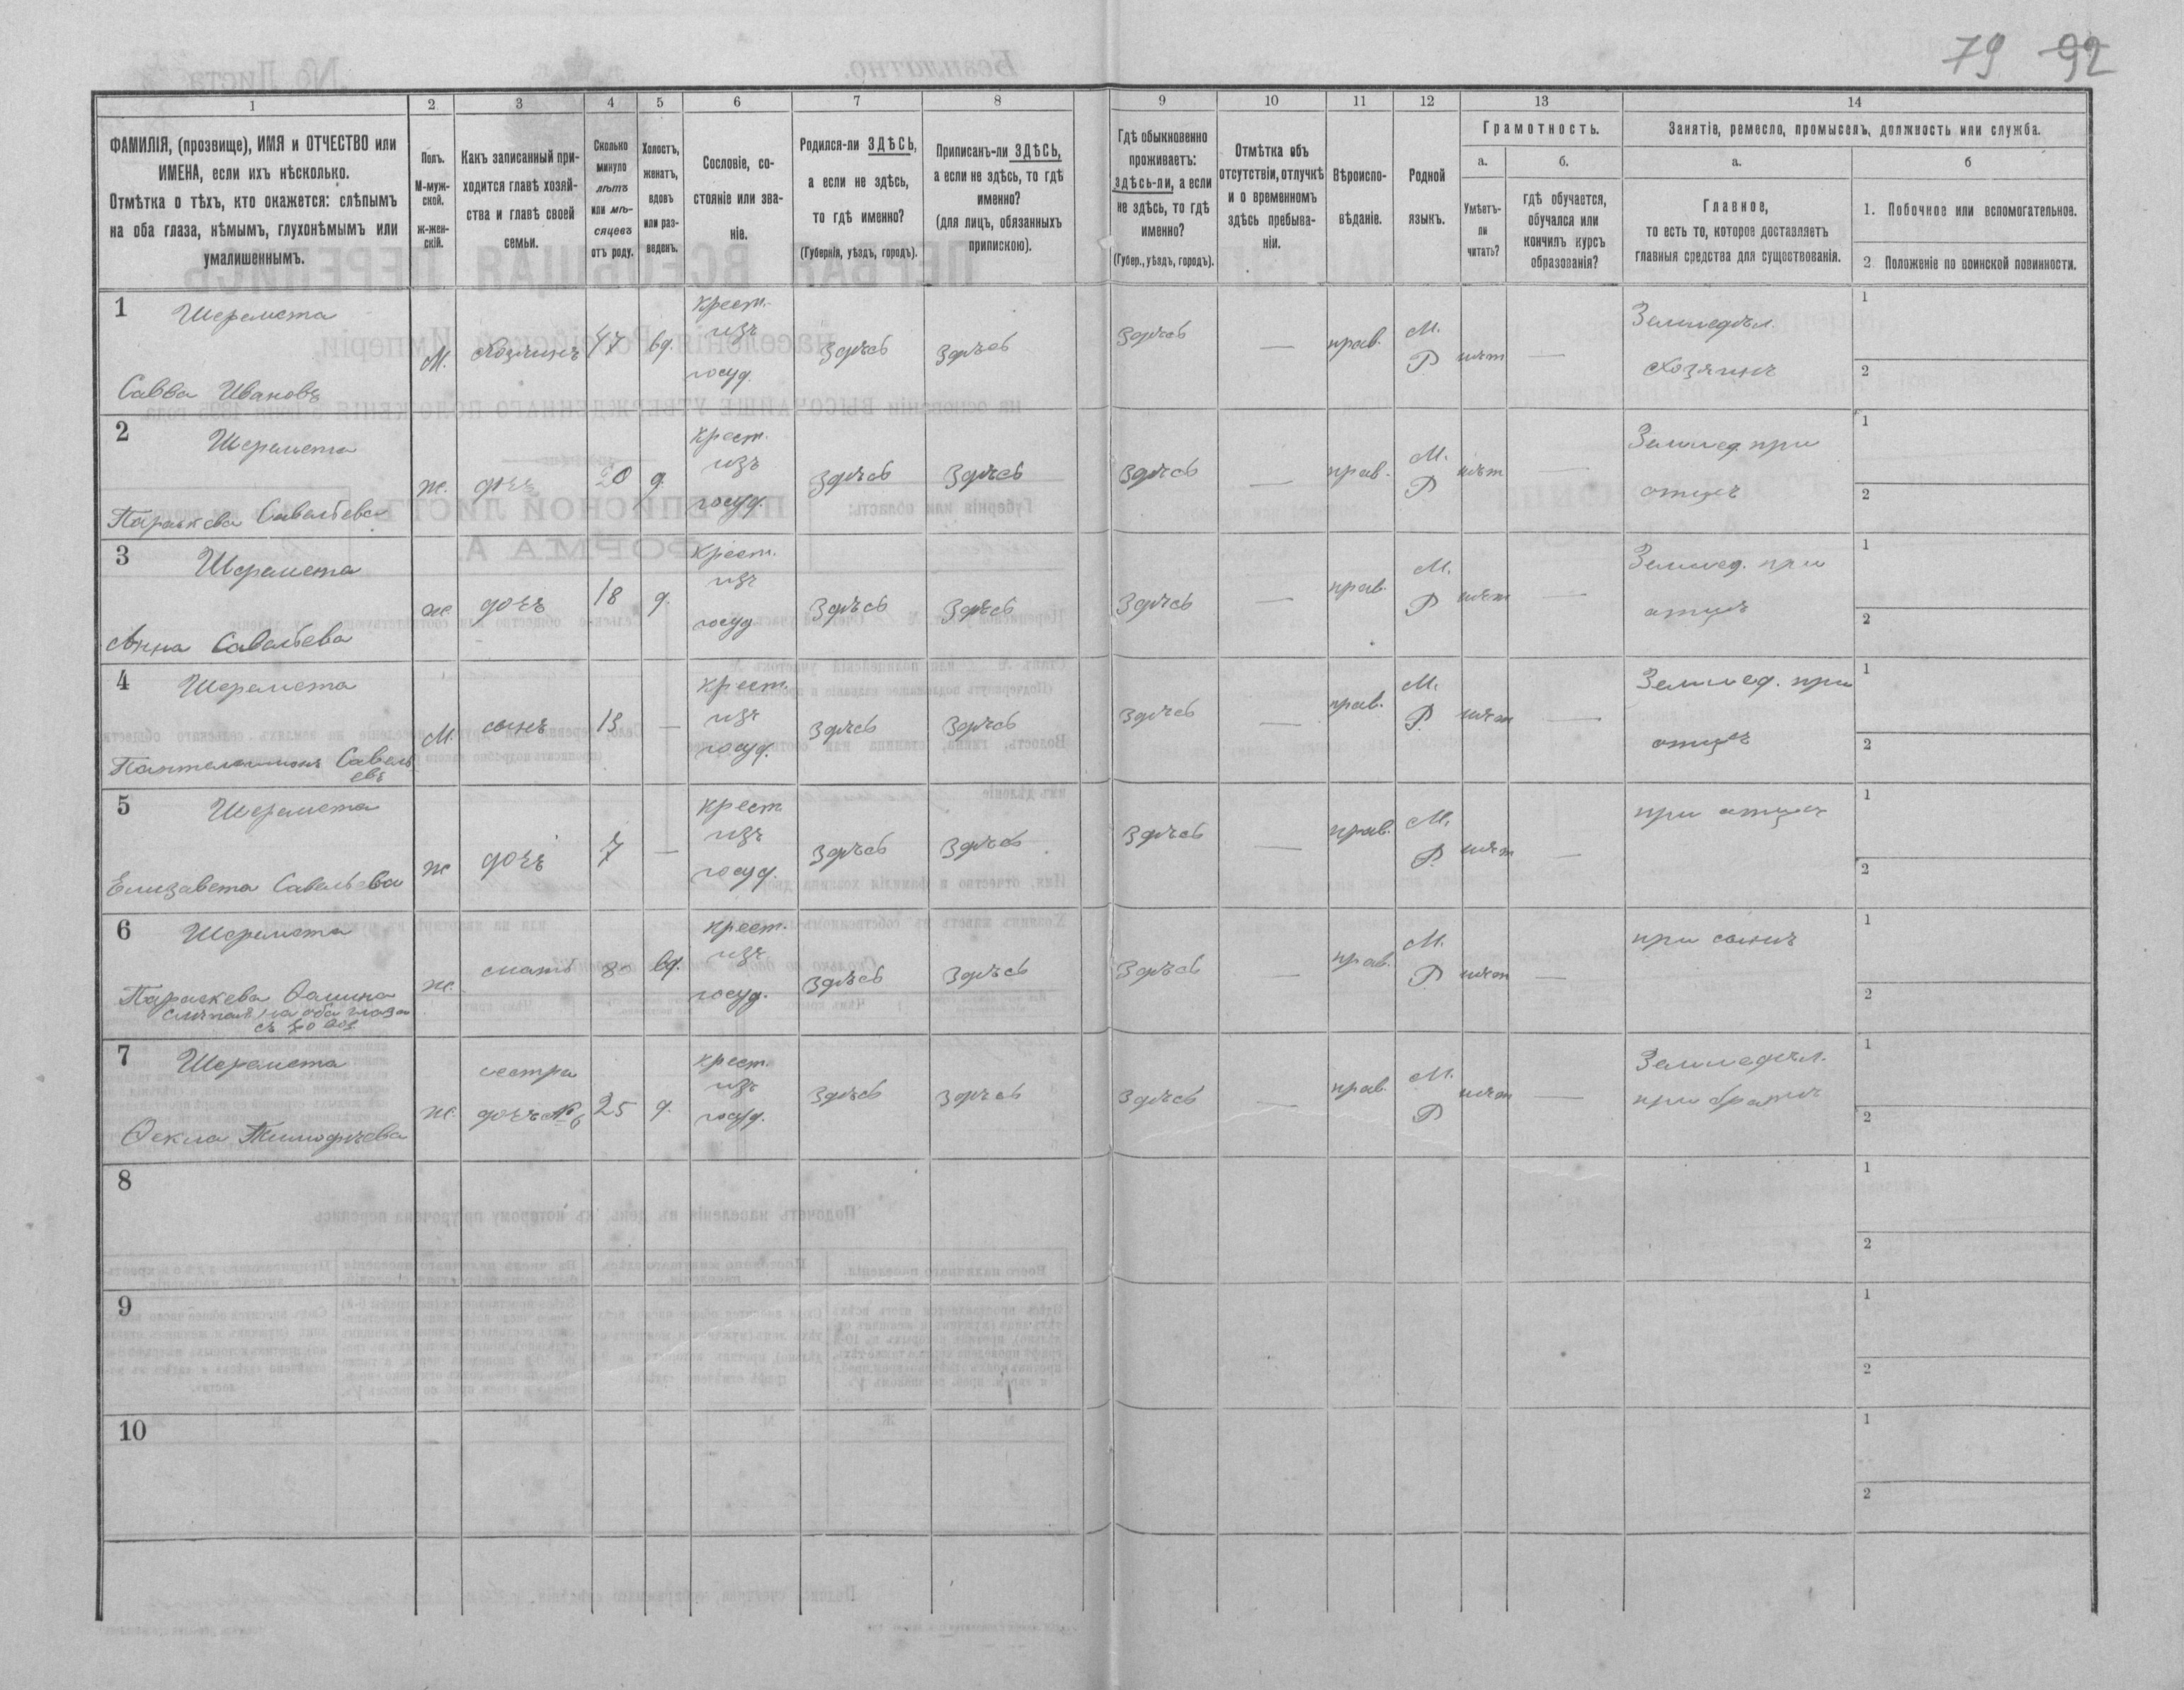 79 92
1 2 3 4 5 6 7 8 9 10 11 12 13 14
ФАМИЛІЯ, (прозвище), ИМЯ и ОТЧЕСТВО или
ИМЕНА, если ихъ нѣсколько.
Отмѣтка о тѣхъ, кто окажется: слѣпымъ
на оба глаза, нѣмымъ, глухонѣмымъ или
умалишеннымъ.
Полъ.
М-муж-
ской.
ж-жен-
скій.
Какъ записанный при-
ходится главѣ хозяй-
ства и главѣ своей
семьи.
Сколько
минуло
лѣтъ
или мѣ-
сяцевъ
отъ роду.
Холостъ,
женатъ,
вдовъ
или раз-
веденъ.
Сословіе, со-
стояніе или зва-
ніе.
Родился-ли ЗДѢСЬ,
а если не здѣсь,
то гдѣ именно?
(Губернія, уѣздъ, городъ).
Приписанъ-ли ЗДѢСЬ,
а если не здѣсь, то гдѣ
именно?
(для лицъ, обязанныхъ
припискою).
Гдѣ обыкновенно
проживаетъ:
здѣсь-ли, а если
не здѣсь, то гдѣ
именно?
(Губер., уѣздъ, городъ).
Отмѣтка объ
отсутствіи, отлучкѣ
и о временномъ
здѣсь пребыва-
ніи.
Вѣроиспо-
вѣданіе.
Родной
языкъ.
Грамотность.
а.
Умѣетъ-
ли
читать?
б.
гдѣ обучается,
обучался или
кончилъ курсъ
образованія?
Занятіе, ремесло, промыселъ, должность или служба.
а.
Главное,
то есть то, которое доставляетъ
главныя средства для существованія.
б
1. Побочное или вспомогательное.
2 Положеніе по воинской повинности.
1 Шеремета
Савва Ивановъ
М. Хозяинъ 47 вд.
крест.
изъ
госуд.
здѣсь здѣсь здѣсь — прав.
М.
Р
нѣт —
Земледѣл.
Хозяинъ
1
2
2 Шеремета
Параскева Савельева
ж. дочь 20 д.
крест.
изъ
госуд.
здѣсь здѣсь здѣсь — прав.
М.
Р
нѣт —
Землед. при
отцѣ
1
2
3 Шеремета
Анна Савельева
ж дочь 18 д.
крест.
изъ
госуд
здѣсь здѣсь здѣсь — прав.
М.
Р
нѣт —
Землед. при
отцѣ
1
2
4 Шеремета
Пантелеимонъ Савель
евъ
М. сынъ 13 —
крест.
изъ
госуд.
здѣсь здѣсь здѣсь — прав.
М.
Р
нѣт —
Землед. при
отцѣ
1
2
5 Шеремета
Елизавета Савельева
ж дочь 7 —
крест
изъ
госуд.
здѣсь здѣсь здѣсь — прав.
М.
Р.
нѣт —
при отцѣ
1
2
6 Шеремета
Параскева Фомина
слѣпая на оба глаза
съ
ж. мать 80 вд.
крест.
изъ
госуд.
здѣсь здѣсь здѣсь — прав.
М.
Р
нѣт —
при сынѣ
1
2
7 Шеремета
Фекла Тимофѣева
ж.
сестра
дочь №6
25 д.
крест.
изъ
госуд.
здѣсь здѣсь здѣсь — прав.
М.
Р
нѣт —
Земледѣл.
при братѣ
1
2
8
1
2
9
1
2
10
1
2